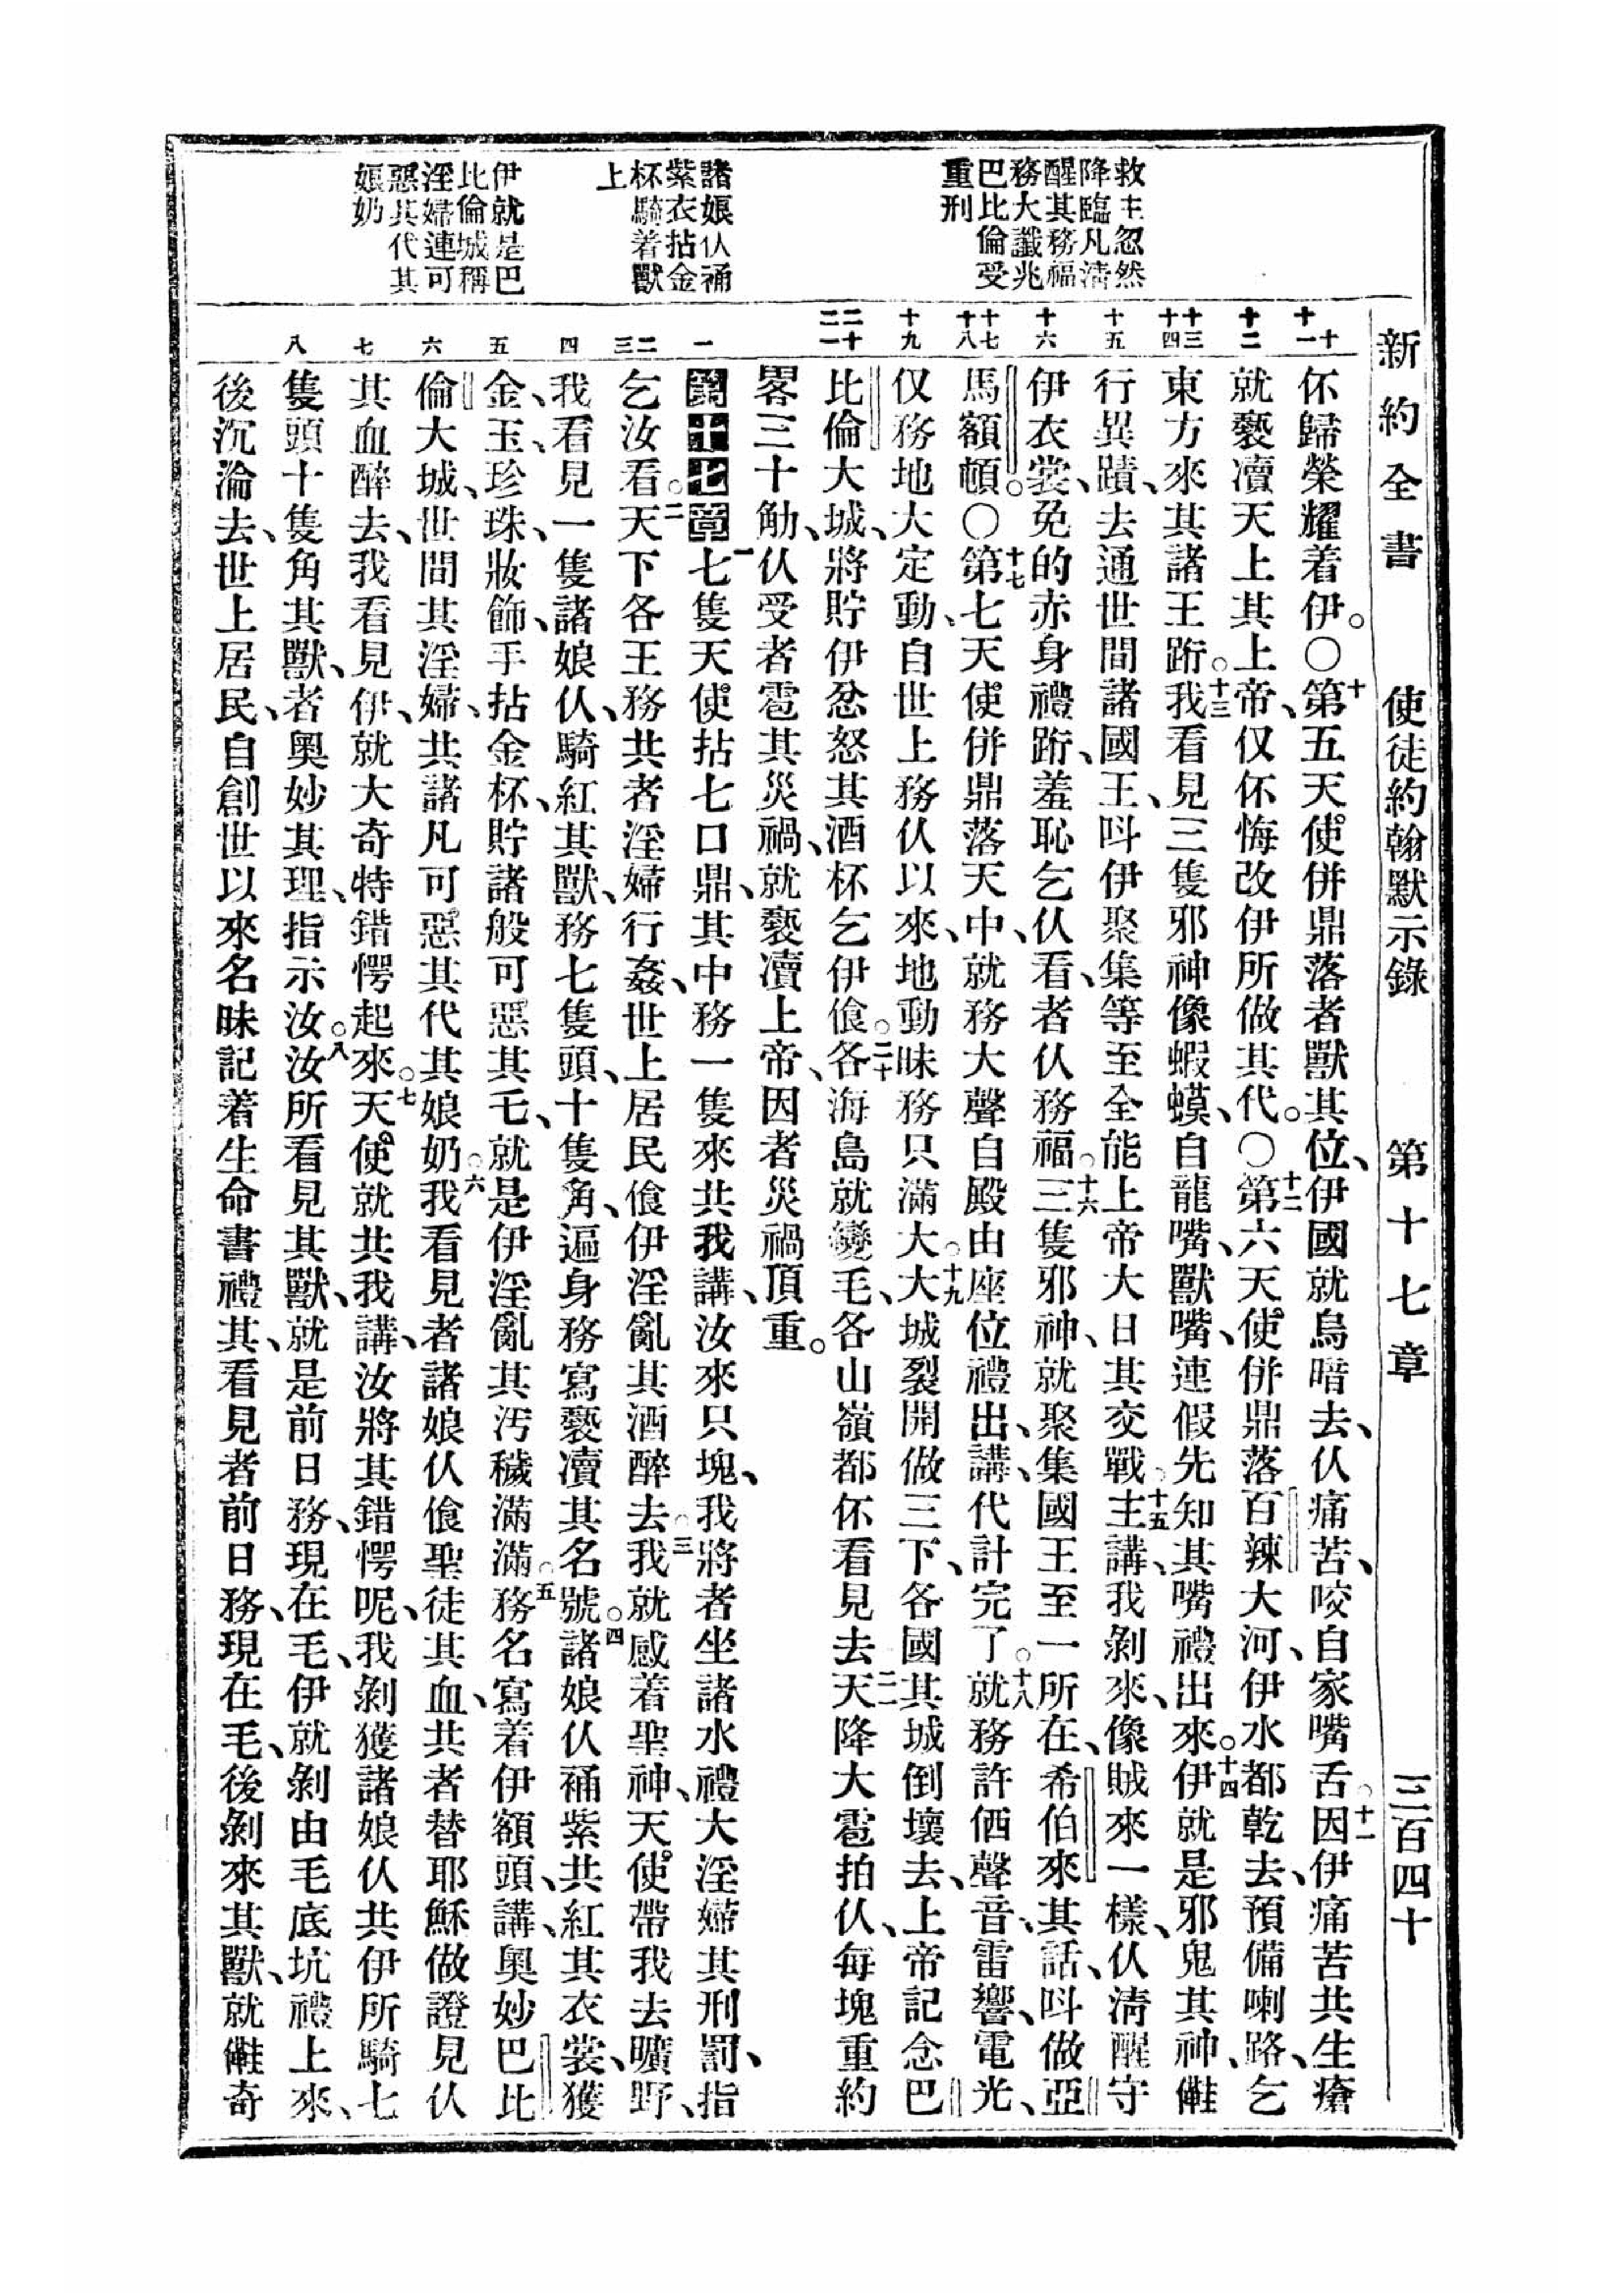 新約全書　使徒約翰默示錄　第十七章　三百四十
救主忽然
降臨凡淸
醒其務福
務大讖兆
巴比倫受
重刑
諸娘仈䘄
紫衣拈金
杯騎着獸
上
伊就是巴
比倫城稱
淫婦連可
惡其代其
娘奶
十
十一
十二
十三
十四
十五
十六
十七
十八
十九
二十
二一
一
二
三
四
五
六
七
八
伓歸榮耀着伊。〇十第五天使併鼎落者獸其位、伊國就烏暗去、仈痛苦、咬自家嘴舌。十一因伊痛苦共生瘡
就褻瀆天上其上帝、仅伓悔改伊所做其代。〇十二第六天使併鼎落百辣大河、伊水都乾去、預備喇路、乞
東方來其諸王跴。十三我看見三隻邪神像蝦蟆、自龍嘴、獸嘴、連假先知其嘴禮出來。十四伊就是邪鬼其神、
行異蹟、去通世間諸國王、呌伊聚集等至全能上帝大日其交戰。十五主講、我剝來、像賊來一樣、仈淸醒守
伊衣裳、免的赤身禮跴、羞恥乞仈看、者仈務福。十六三隻邪神、就聚集國王至一所在、希伯來其話、呌做亞
馬額頓。〇十七第七天使併鼎落天中、就務大聲自殿由座位禮出、講、代計完了。十八就務許㑚聲音、雷響、電光、
仅務地大定動、自世上務仈以來、地動昧務只滿大。十九大城裂開做三下、各國其城倒壞去、上帝記念巴
比倫大城、將貯伊忿怒其酒杯乞伊飡。二十各海島就變毛、各山嶺都伓看見去。二一天降大雹拍仈、每塊重約
畧三十觔、仈受者雹其災禍、就褻瀆上帝、因者災禍頂重。
第十七章一七隻天使拈七口鼎、其中務一隻來共我講、汝來只塊、我將者坐諸水禮大淫婦其刑罰、指
乞汝看。二天下各王務共者淫婦行姦、世上居民飡伊淫亂其酒醉去。三我就感着聖神、天使帶我去曠野、
我看見一隻諸娘仈、騎紅其獸、務七隻頭、十隻角、遍身務寫褻瀆其名號。四諸娘仈䘄紫共紅其衣裳、獲
金、玉、珍珠、妝飾、手拈金杯、貯諸般可惡其乇、就是伊淫亂其汚穢滿滿。五務名寫着伊額頭、講、奧妙巴比
倫大城、世間其淫婦、共諸凡可惡其代其娘奶。六我看見者諸娘仈飡聖徒其血、共者替耶穌做證見仈
其血醉去、我看見伊、就大奇特錯愕起來。七天使就共我講、汝將其錯愕呢、我剝獲諸娘仈共伊所騎七
隻頭十隻角其獸、者奧妙其理、指示汝。八汝所看見其獸、就是前日務、現在毛、伊就剝由毛底坑禮上來、
後沉淪去、世上居民、自創世以來名昧記着生命書禮其、看見者前日務、現在毛、後剝來其獸、就奇